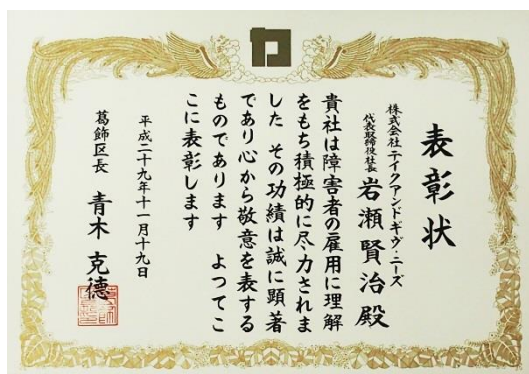 表彰状
株式会社テイクアンドギヴ・ニーズ
代表取締役社長 岩瀬賢治殿
貴社は障害者の雇用に理解
をもち積極的に尽力されま
した その功績は誠に顕著
であり心から敬意を表する
ものであります よってこ
こに表彰します
平成二十九年十一月十九日
葛飾区長 青木克德